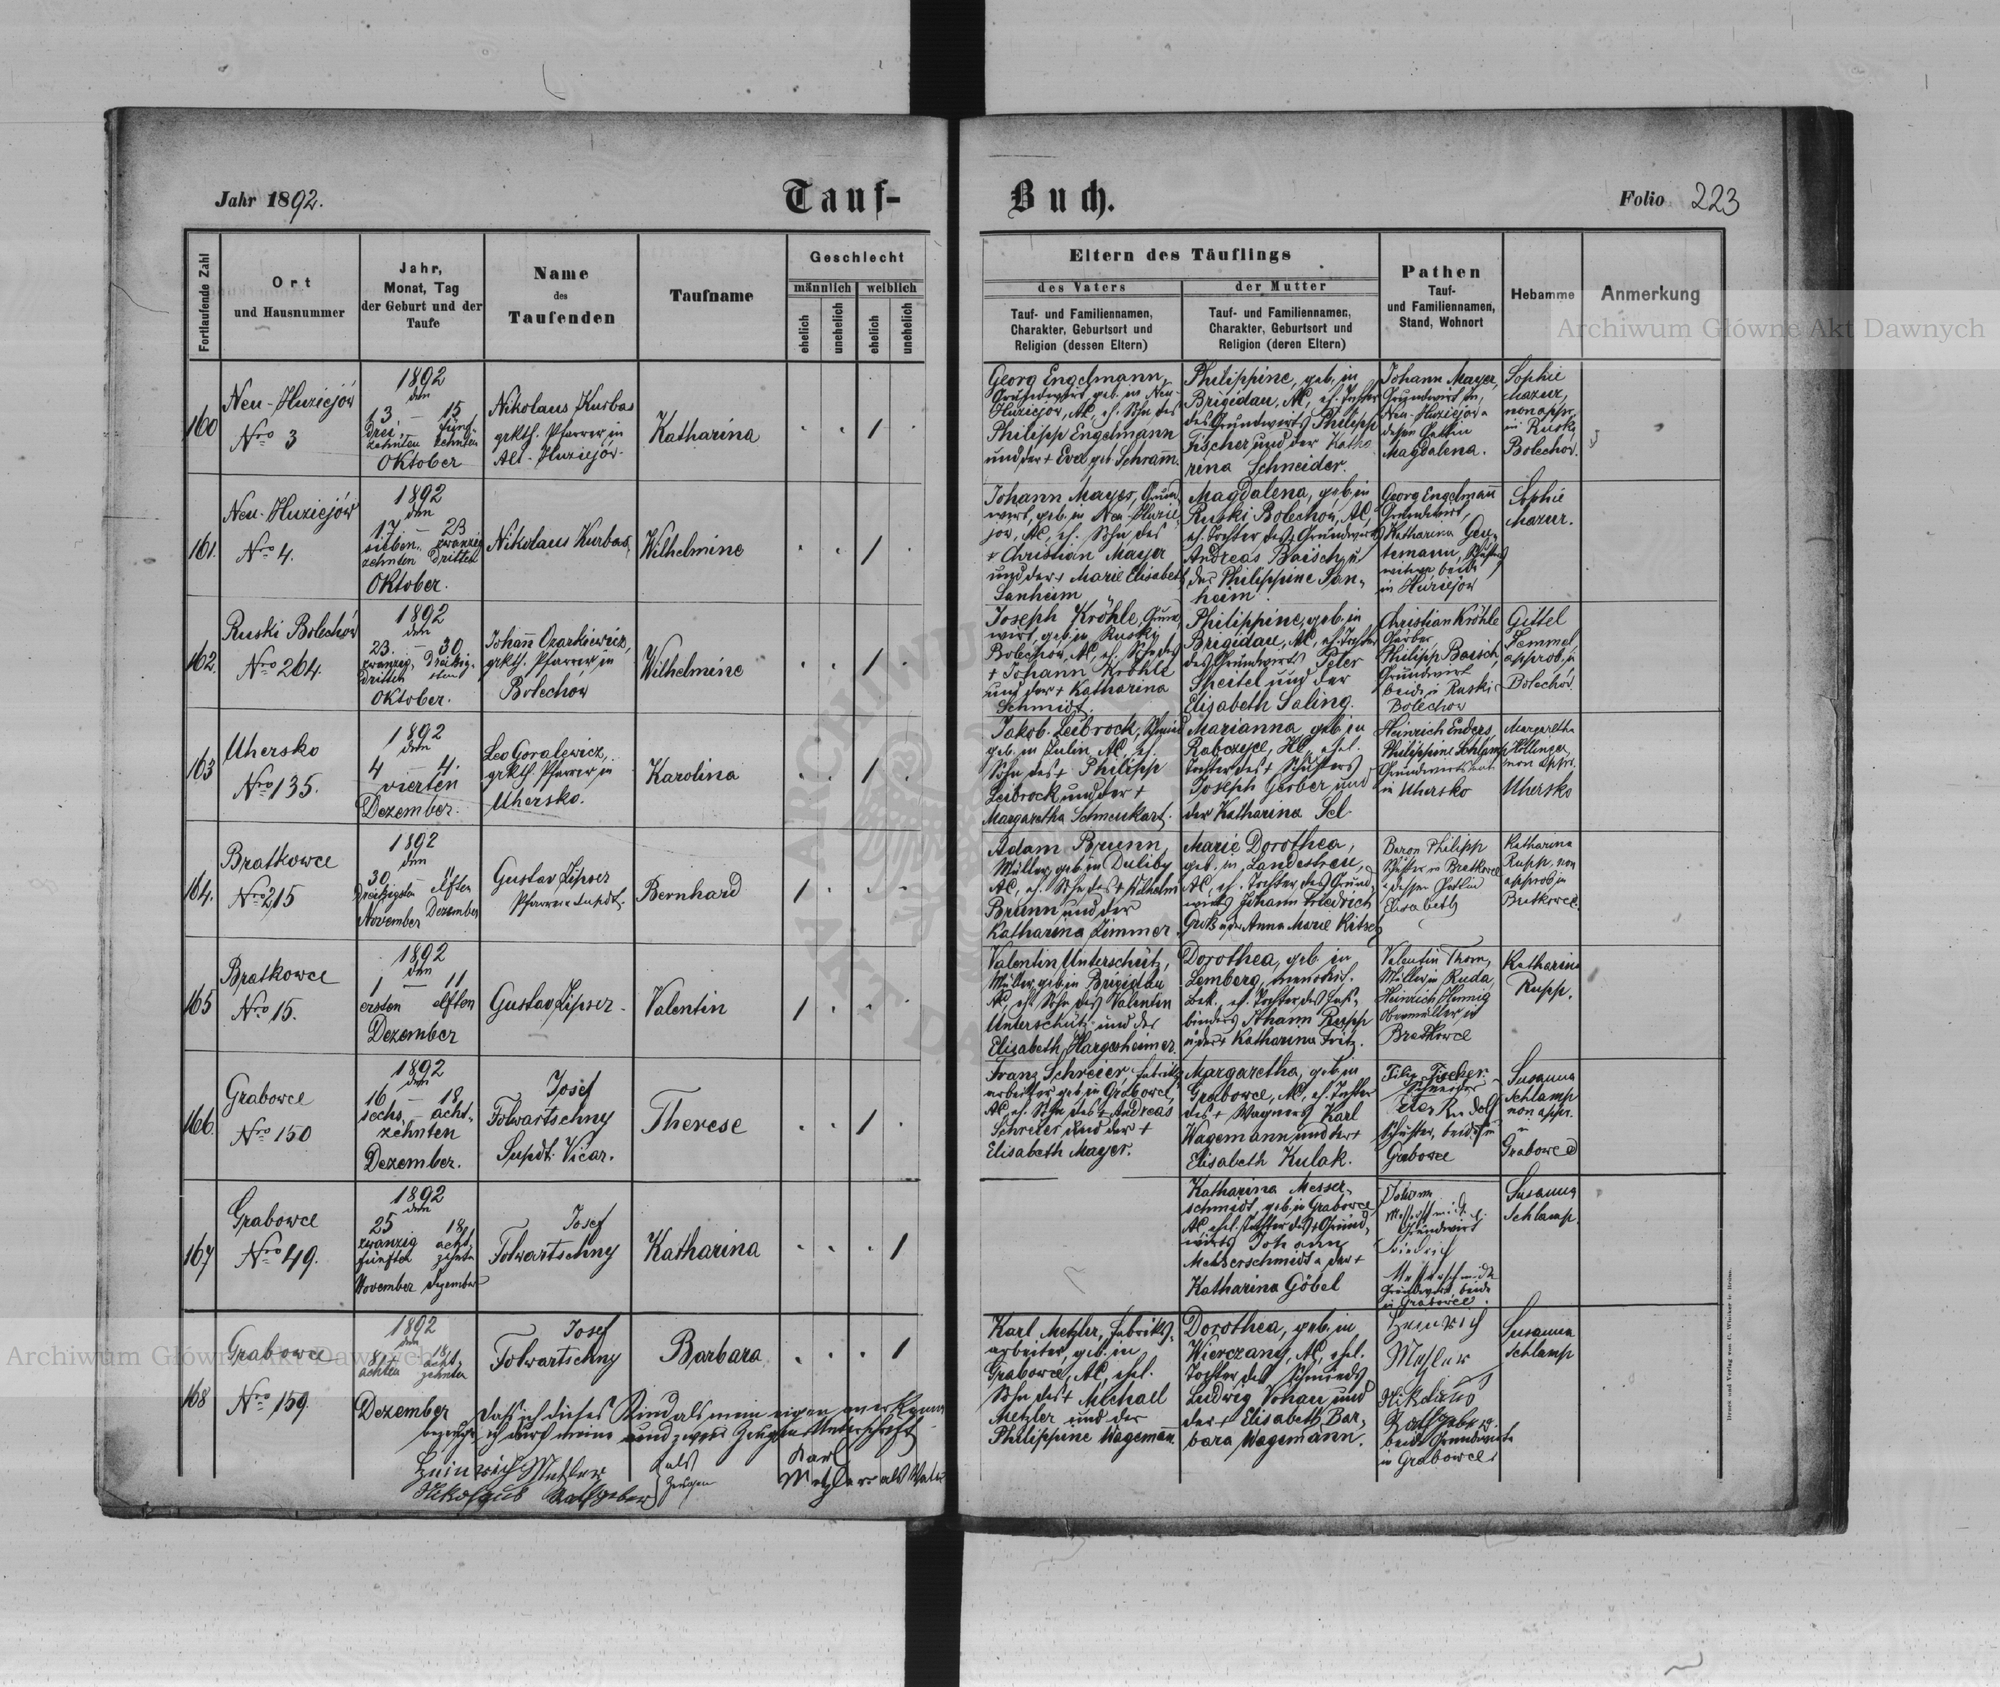 Jahr 1892.
Tauf-
Buch.
Folio 223
Fortlaufende Zahl
Ort
und Hausnummer
Jahr,
Monat, Tag
der Geburt und der
Taufe
Name
des
Taufenden
Taufname
Geschlecht
männlich
weiblich
ehelich
unehelich
ehelich
unehelich
Eltern des Täuflings
des Vaters
Tauf- und Familiennamen,
Charakter, Geburtsort und
Religion (dessen Eltern)
der Mutter
Tauf- und Familiennamen,
Charakter, Geburtsort und
Religion (deren Eltern)
Pathen
Tauf-
und Familiennamen,
Stand, Wohnort
Hebamme
Anmerkung
160
Neu-Huziejów
Nro 3
1892
den
13 – 15
drei- fünf-
zehnten zehnten
Oktober
Nikolaus Kurbas
grkth. Pfarrer in
Alt-Huziejów.
Katharina
Georg Engelmann,
Grundwirt, geb. in Neu-
Huziejow, AC, eh. Sohn des
Philipp Engelmann
und der + Eva geb. Schramm.
Philippine, geb. in
Brigidau, AC, eh. Tochter
des Grundwirts Philipp
Fischer und der Katha
rina Schneider.
Johann Mayer,
Grundwirt in
Neu-Huziejow u
dessen Gattin
Magdalena.
Sophie
Mazur,
non appr.
in Ruski
Bolechov.
161.
Neu-Huziejów
Nro 4.
1892
den
17 – 23
sieben- zwanzig
zehnten dritten
Oktober.
Nikolaus Kurbas,
Wilhelmine
Johann Mayer, Grund
wirt, geb. in Neu Huzie
jow, AC, eh. Sohn des
+ Christian Mayer
und der + Marie Elisabeth
Sanheim
Magdalena, geb. in
Ruski Bolechow, AC,
eh. Tochter des Grundwirts
Andreas Baisch u
der Philippine San-
heim.
Georg Engelmann
Grundwirt,
Katharina Gu-
temann,
witwe beide
in Huziejow
Sophie
Mazur.
162.
Ruski Bolechów
Nro 264.
1892
den
23. – 30
zwanzig- dreißig-
dritten sten
Oktober.
Johann Ozarkiewicz,
grkth. Pfarrer in
Bolechów
Wilhelmine
Joseph Kröhle, Grund
wirt, geb. in Rusky
Bolechow, AC, eh. Sohn des
+ Johann Kröhle
und der + Katharina
Schmidt.
Philippine, geb. in
Brigidau, AC, eh. Tochter
des Grundwirts Peter
Scheitel und der
Elisabeth Saling.
Christian Kröhle
Gärber,
Philipp Baisch,
Grundwirt
beide in Ruski-
Bolechow
Gittel
Semmel
approb. in
Bolechów.
163
Uhersko
Nro 135.
1892
den
4 – 4.
vierten
Dezember.
Leo Goralewicz,
grkth. Pfarrer in
Uhersko.
Karolina
Jakob Leibrock, Schmied
geb. in Lulin AC, eh.
Sohn des + Philipp
Leibrock und der +
Margaretha Schmenkart.
Marianna geb. in
Rabczyce, HC, ehel.
Tochter des + Schusters
Joseph Gerber und
der Katharina Sel.
Heinrich Enders,
Philippine Schlamp
in Uhersko
Margaretha
Hollinger
non appr.
Uhersko
164.
Bratkowce
Nro 215
1892
den
30 –
dreißigsten elften
November Dezember
Gustav Zipser
Pfarrer u. Supdt.
Bernhard
Adam Brunn,
Müller, geb. in Duliby
AC, eh. Sohn des + Wilhelm
Brunn und der
Katharina Zimmer.
Marie Dorothea,
geb. in Landestreu,
AC, eh. Tochter des Grund
wirts Johann Friedrich
Groß u der Anna Marie Kitsch
Baron Philipp
in Bratkowce
u dessen Gattin
Elisabeth
Katharina
Rupp non
approb in
Bratkowce.
165
Bratkowce
Nro 15.
1892
den
1 – 11
ersten elften
Dezember
Gustav Zipser.
Valentin
Valentin Unterschütz,
Müller, geb. in Brigidau
AC, eh. Sohn des Valentin
Unterschütz und der
Elisabeth Hargesheimer.
Dorothea, geb. in
Lemberg, menonit.
Bek., eh. Tochter des Fass-
binders Johann Rupp
u der + Katharina Fritz.
Valentin Thom,
Müller in Ruda,
Heinrich Hennig
Obermüller in
Bratkowce
Katharina
Rupp.
166.
Grabowce
Nro 150
1892
den
16 – 18
sechs- acht-
zehnten
Dezember.
Josef
Folwartschny
Supdt. Vicar.
Therese
Franz Schreier, Fabriks
arbeiter geb. in Grabowce,
AC, eh. Sohn des + Andreas
Schreier und der +
Elisabeth Mayer.
Margaretha, geb. in
Grabowce, AC, eh. Tochter
des + Wagners Karl
Wagemann und der +
Elisabeth Kulak.
Filip Fischer
Rudolf
Schuster, beide in
Grabowce
Susanna
Schlamp
non appr.
in
Grabowce
167
Grabowce
Nro 49.
1892
den
25 18
zwanzig acht-
fünften zehnten
November Dezember
Josef
Folwartschny
Katharina
Katharina Messer-
schmidt, geb. in Grabowce
AC, ehel. Tochter des + Grund
wirts Johann
Messerschmidt u der +
Katharina Göbel
Johann
Messerschmidt
Grundwirt
Friedrich
Messerschmidt
Grundwirt, beide
in Grabowce.
Susanna
Schlamp.
168
Grabowce
Nro 159.
1892
den
8 18
achten achtzehnten
Dezember
Josef
Folwartschny
Barbara
Karl Metzler, Fabriks-
arbeiter, geb. in
Grabowce, AC, ehel.
Sohn des + Michael
Metzler und der
Philippine Wagemann.
Dorothea, geb. in
Wierczany, AC, ehel.
Tochter des Schmieds
Ludwig Vonau und
der + Elisabeth Bar-
bara Wagemann.
Heinrich
Metzler
Nikolaus
Rathgeber
beide Grundwirte
in Grabowce
Susanna
Schlamp
Daß ich dieses Kind als mein eigen anerkenne
bezeuge ich durch meine und zweier Zeugen Unterschrift
Heinrich Metzler
Nikolaus Rathgeber
als
Zeugen
Karl
Metzler als Vater
Archiwum Główne Akt Dawnych
Archiwum Główne Akt Dawnych